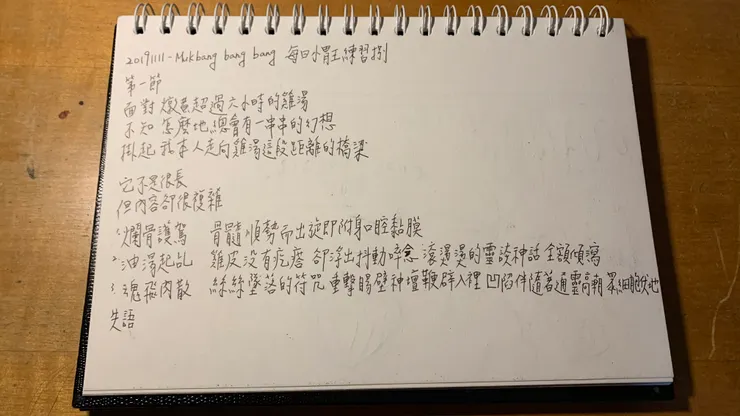 20191111-Mukbang bang bang 每日小胃王練習捌
第一節
面對 燉煮超過六小時的雞湯
不知 怎麼地總會有一串串的幻想
掛起 我本人走向雞湯這段距離的橋梁
它不是很長
但內容卻很複雜
1. 爛骨護駕 骨髓順勢而出旋即附身口腔黏膜
2. 油湯起乩 雞皮沒有疙瘩 卻浮出抖動碎念 滾燙燙的靈談神話 全額傾瀉
3. 魂飛肉散 絲絲墜落的符咒 重擊腸壁神壇鞭辟入裡 凹陷伴隨著通靈高朝 眾細胞伏地
失語